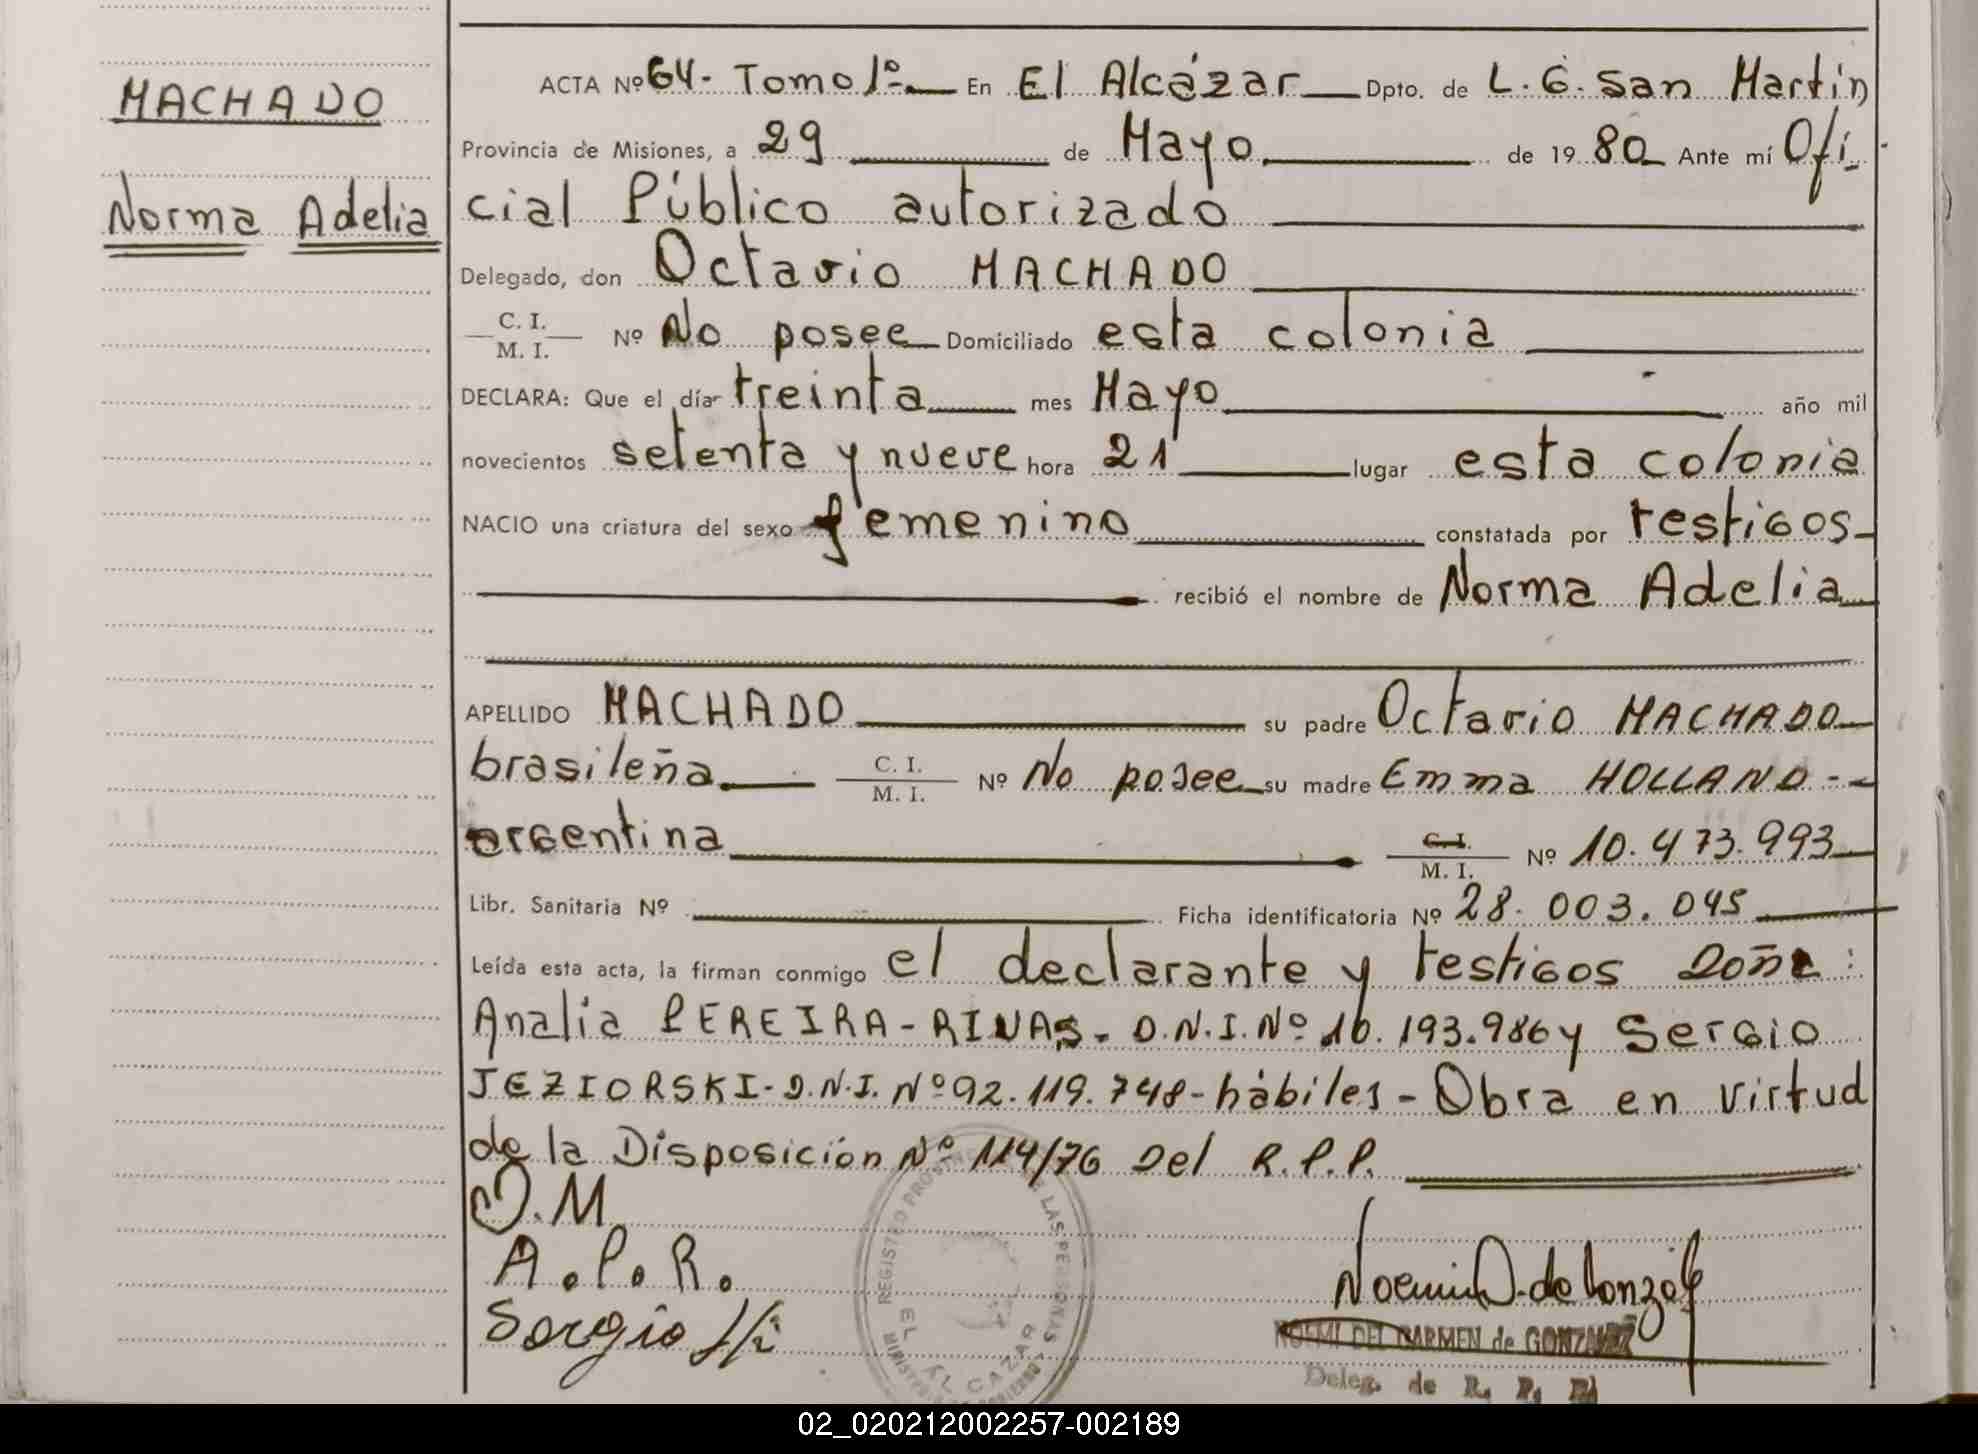 MACHADO
Norma Adelia
ACTA Nº 64- Tomo 1º- En El Alcázar Dpto. de L. G. San Martín
Provincia de Misiones, a 29 de Mayo de 19 80 Ante mí Ofi
cial Público autorizado
Delegado, don Octavio MACHADO
C. I.
M. I. Nº No posee Domiciliado esta colonia
DECLARA: Que el día treinta mes Mayo año mil
novecientos setenta y nueve hora 21 lugar esta colonia
NACIO una criatura del sexo femenino constatada por testigos
recibió el nombre de Norma Adelia
APELLIDO MACHADO su padre Octavio MACHADO
brasileña C. I.
M. I. Nº No posee su madre Emma HOLLAND -
argentina C. I.
M. I. Nº 10.473.993
Libr. Sanitaria Nº Ficha identificatoria Nº 28.003.045
Leída esta acta, la firman conmigo el declarante y testigos Doña:
Analia PEREIRA-RIVAS- D.N.I. Nº 10.193.986 y Sergio
JEZIORSKI- D.N.I. Nº 92.119.748- hábiles- Obra en virtud
de la Disposición Nº 114/76 Del R.P.P.
O.M
A.P.R.
Sergio
REGISTRO PROVINCIAL DE LAS PERSONAS
EL ALCAZAR
MINISTERIO DE GOBIERNO
Noemi D. de Gonzalez
NOEMI DEL CARMEN de GONZALEZ
Deleg. de R. P. P.
02_020212002257-002189